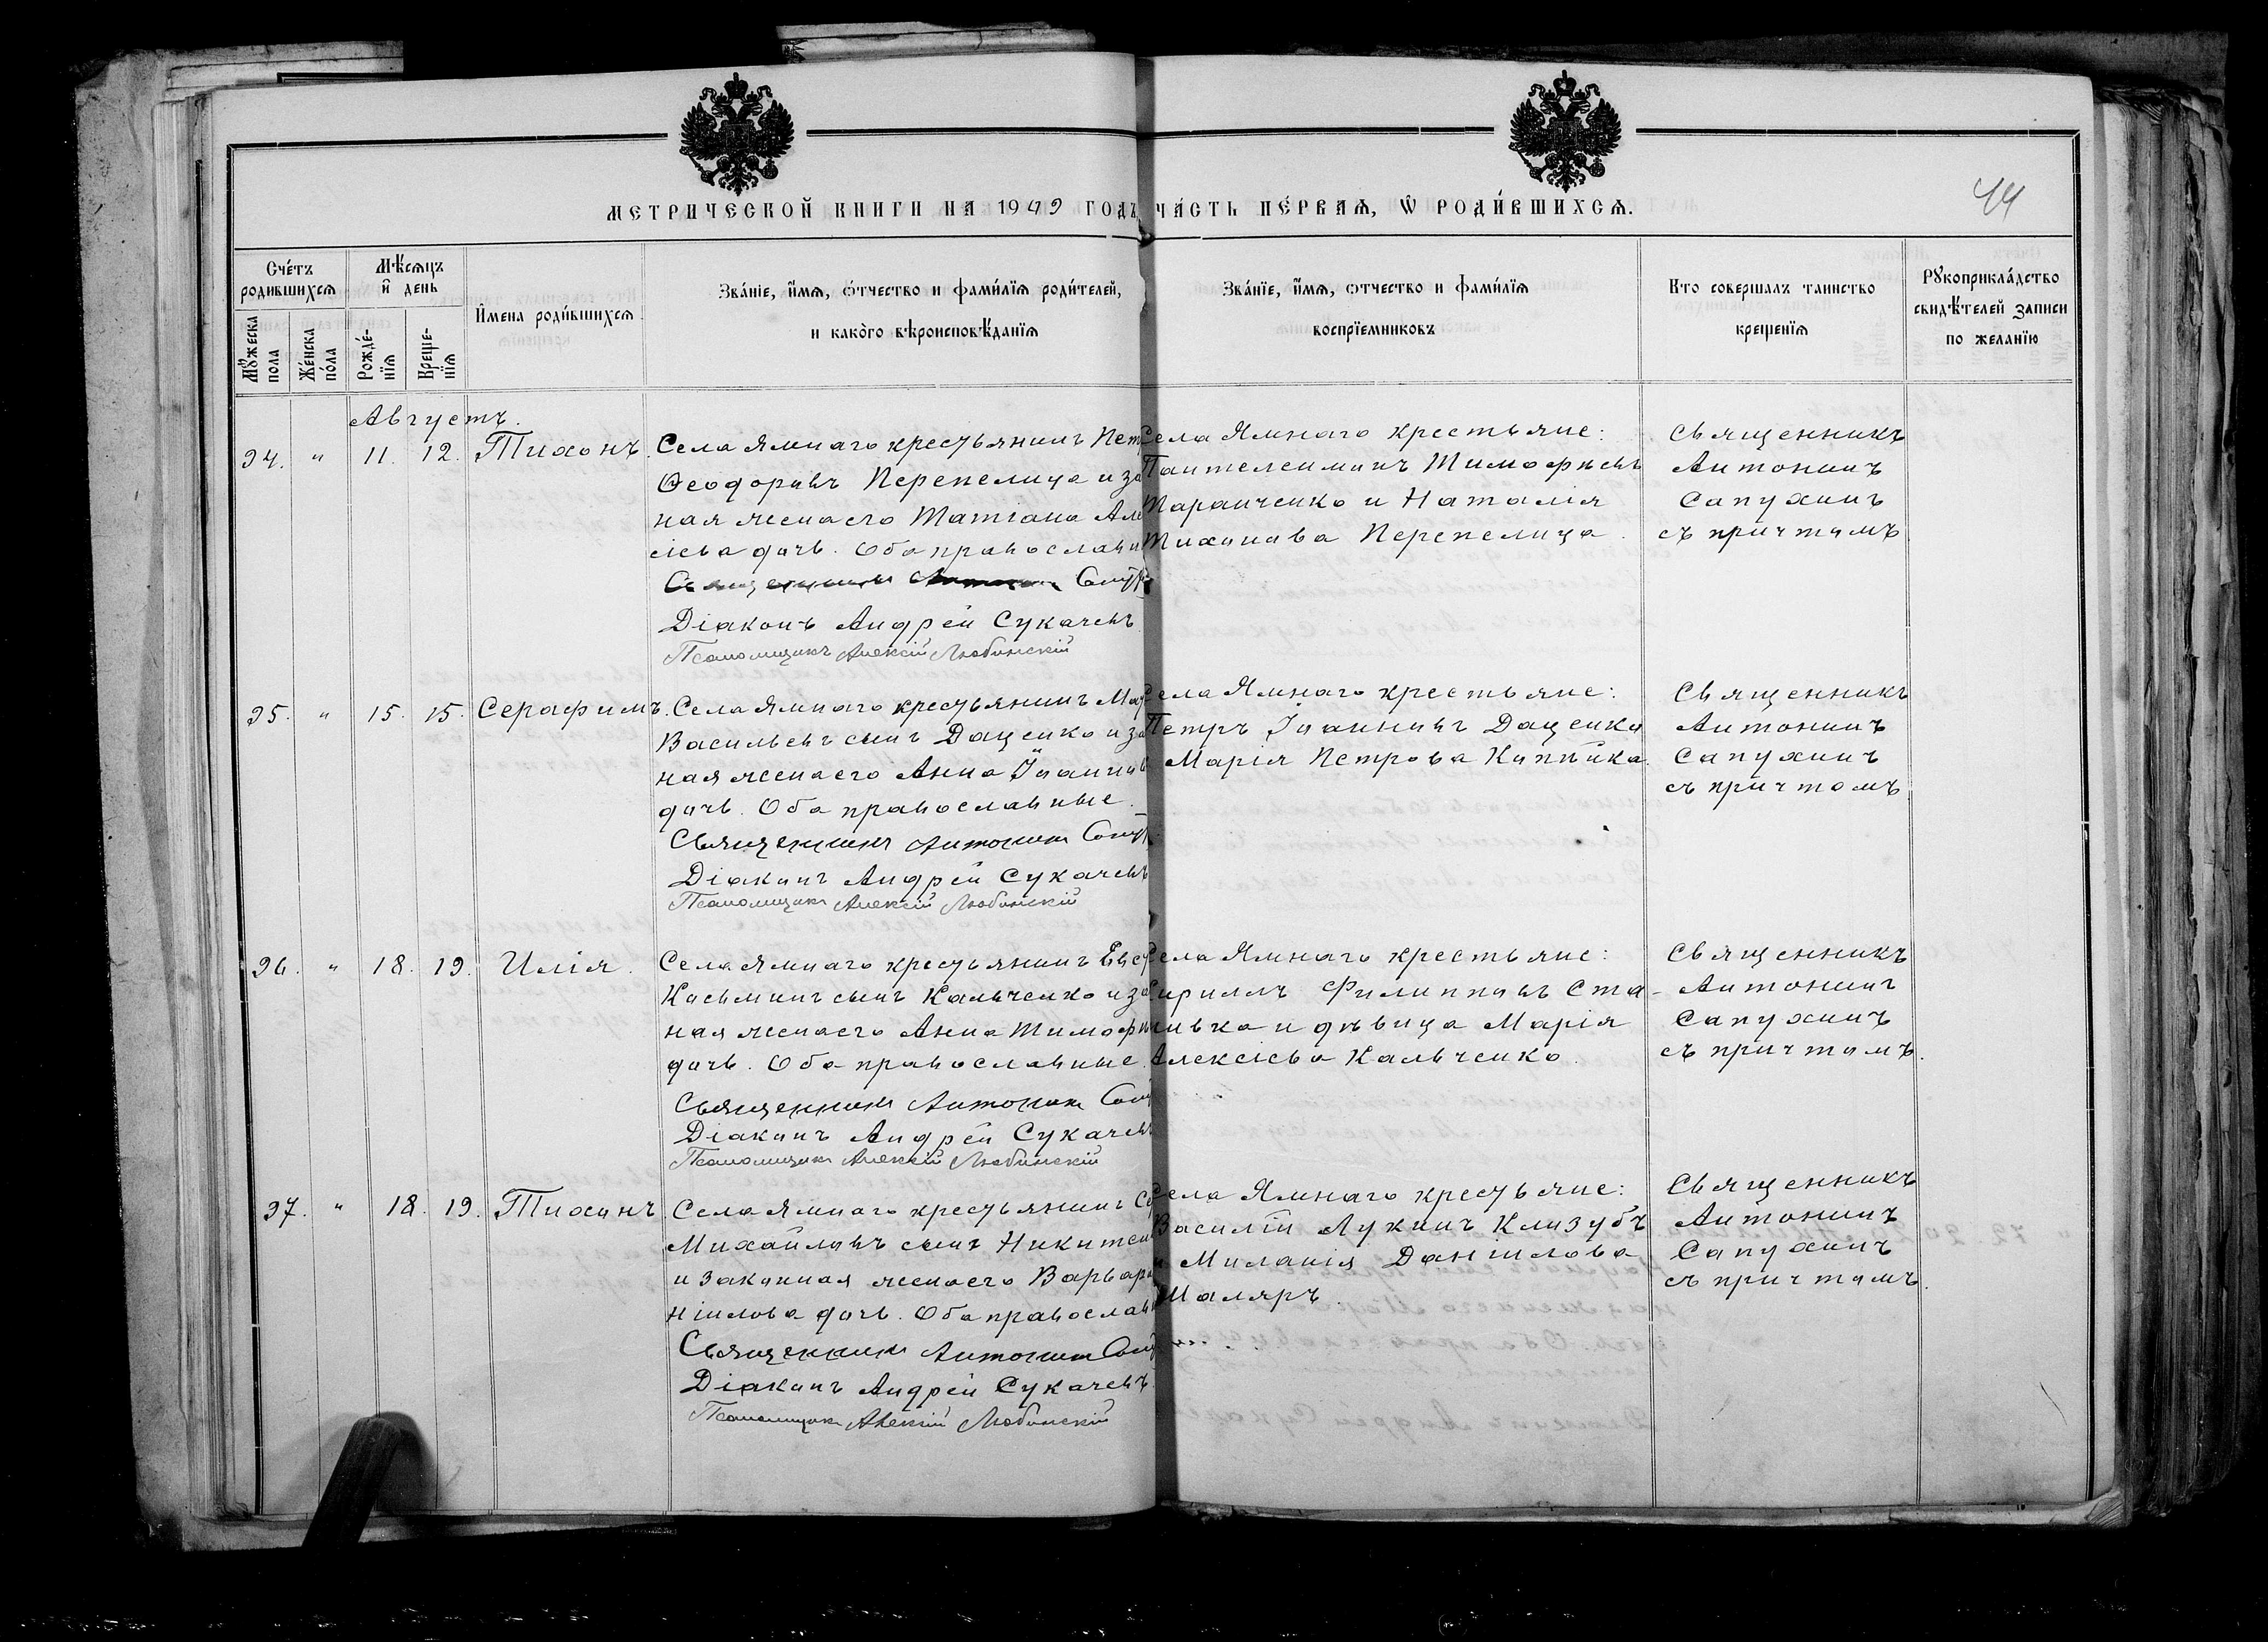 МЕТРИЧЕСКОЙ КНИГИ НА 1909 ГОДЪ, ЧА́СТЬ ПЕ́РВАѦ, Ѡ РОДИ́ВШИХСѦ.
44
Счётъ родившихсѧ
Мѣ́сѧцъ и день
И́мена роди́вшихсѧ
Зва́нїе, и́мѧ, о́тчество и фами́лїѧ роди́телей,
и како́го вѣроисповѣ́данїѧ
Зва́нїе, и́мѧ, отчество и фами́лїѧ
воспрїемниковъ
Кто совершалъ таинство
крещенїѧ
Рꙋкоприкла́дство
свидѣ́телей записи
по желанїю
Мꙋ́жеска пола
Же́нска по́ла
Рожде́-
нїѧ
Креще-
нїѧ
Августъ.
94. " 11. 12. Тихонъ.
Села Ямнаго крестьянинъ Пет
Ѳеодоровъ Перепелица и за
ная жена его Татіана Але
сіева дочь. Оба православн
Діаконъ Андрей Сукачевъ
Псаломщикъ Алексій Любинскій
Села Ямнаго крестьяне:
Пантелеимонъ Тимофѣевъ
Таранченко и Наталія
Тихонова Перепелица.
Священникъ
Антонинъ
Сапухинъ
съ причтомъ
95. " 15. 15. Серафимъ.
Села Ямнаго крестьянинъ
Васильевъ сынъ Даценко и за
ная жена его Анна Іоаннов
дочь. Оба православные.
Священникъ Антонинъ Сапу
Діаконъ Андрей Сукачевъ
Псаломщикъ Алексій Любинскій
Села Ямнаго крестьяне:
Петръ Іоанновъ Даценко
Марія Петрова
Священникъ
Антонинъ
Сапухинъ
съ причтомъ
96. " 18. 19. Илія.
Села Ямнаго крестьянинъ Евс
Косьминъ сынъ Кальченко и за
ная жена его Анна Тимофѣ
дочь. Оба православные.
Священникъ Антонинъ Сапу
Діаконъ Андрей Сукачевъ
Псаломщикъ Алексій Любинскій
Села Ямнаго крестьяне:
Кириллъ Филипповъ Ста-
и дѣвица Марія
Алексіева Кальченко.
Священникъ
Антонинъ
Сапухинъ
съ причтомъ.
97. " 18. 19. Тихонъ
Села Ямнаго крестьянинъ
Михайловъ сынъ Никитен
и законная жена его Варвара
ніилова дочь. Оба православн
Священникъ Антонинъ Сапу
Діаконъ Андрей Сукачевъ
Псаломщикъ Алексій Любинскій
Села Ямнаго крестьяне:
Василій Лукинъ Клизубъ
и Миланія Даніилова
Маляръ.
Священникъ
Антонинъ
Сапухинъ
съ причтомъ.